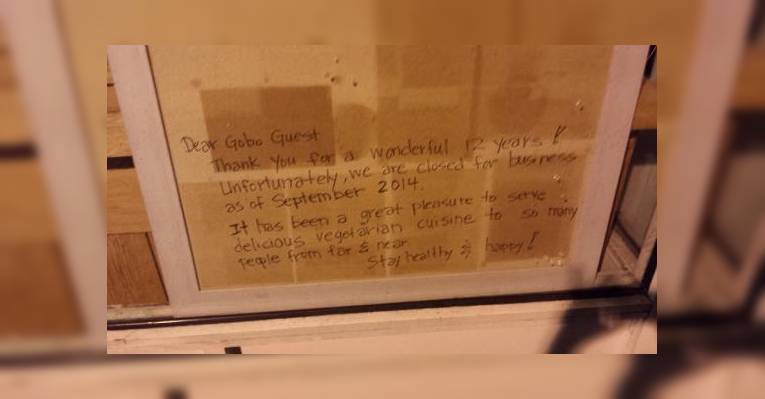 Dear Gobo Guest
Thank you for a wonderful 12 years!
Unfortunately, we are closed for business
as of September 2014.
It has been a great pleasure to serve
delicious vegetarian cuisine to so many
people from far & near
Stay healthy & happy!